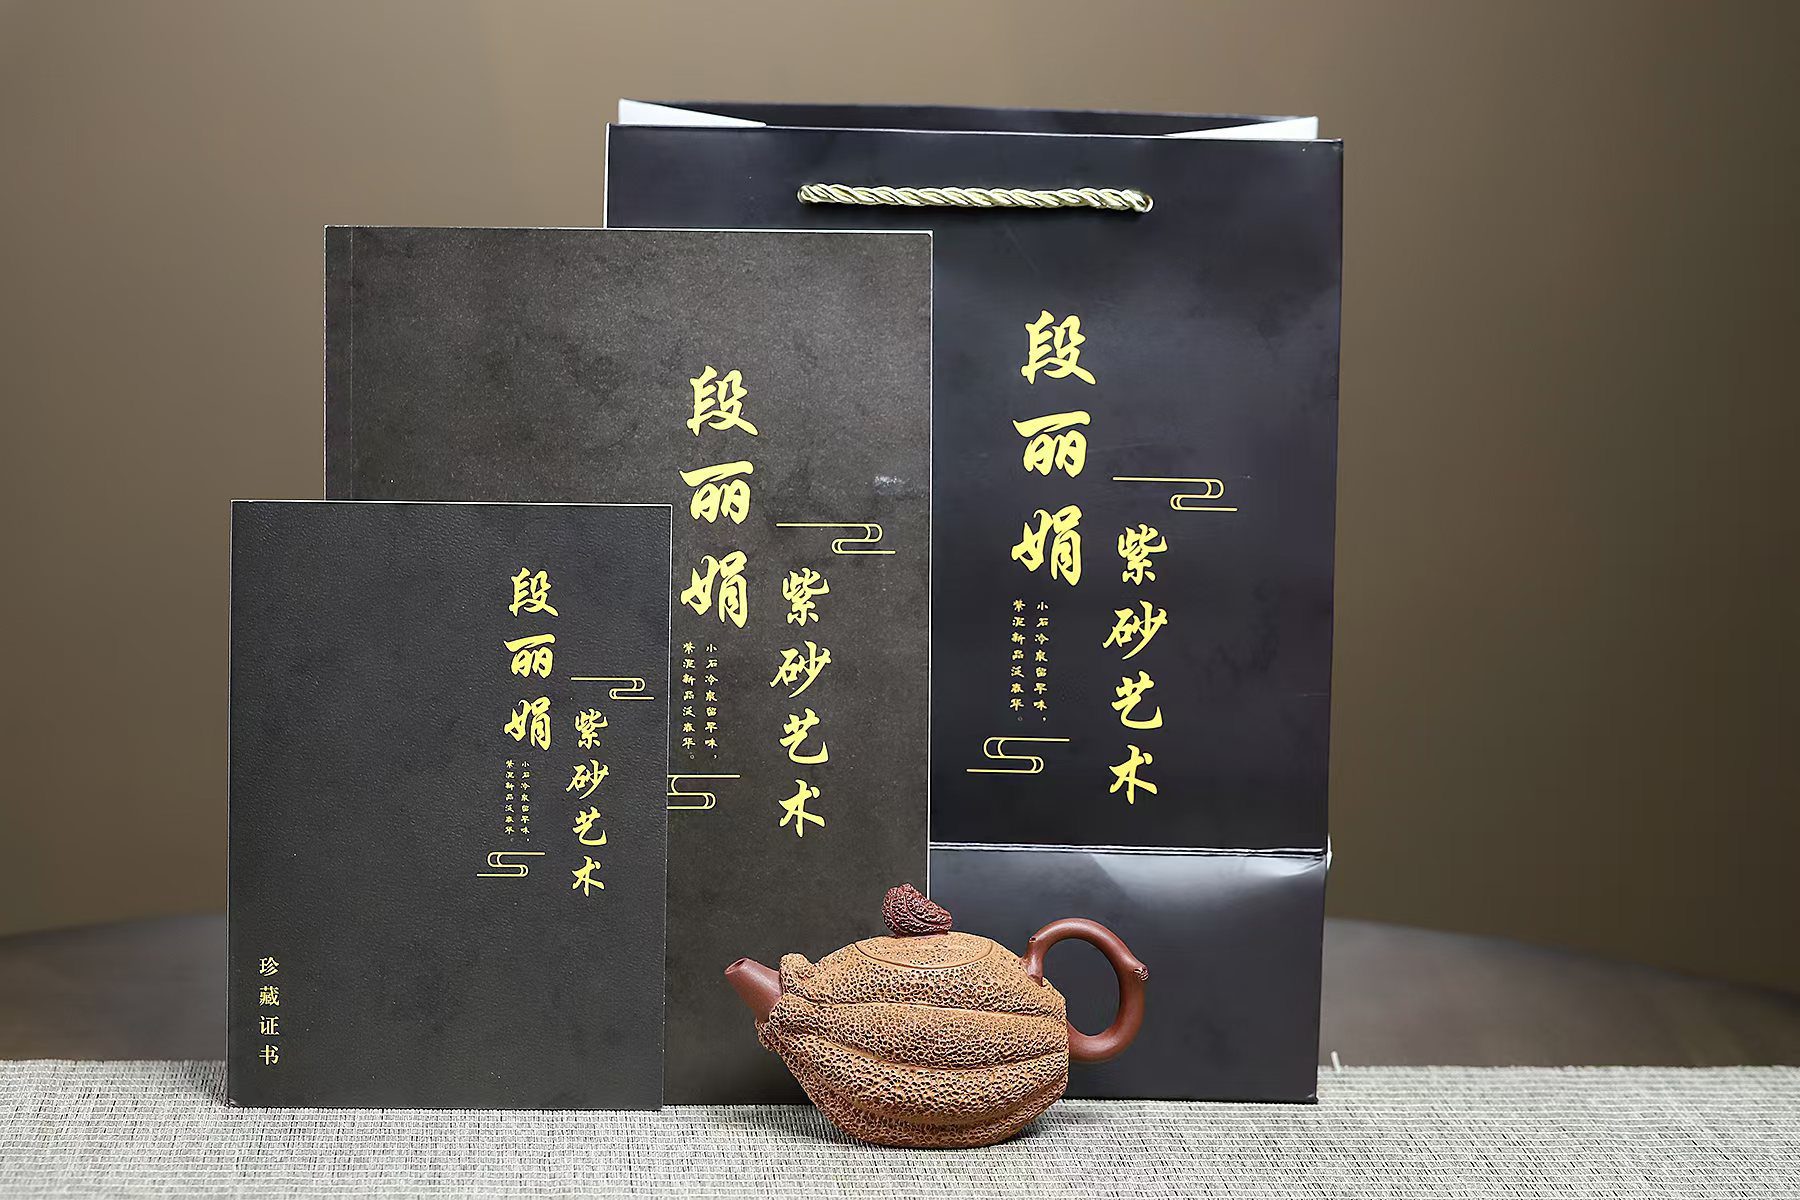 段丽娟
紫砂艺术
小石冷泉留早味，
紫泥新品泛春华。
珍藏证书
段丽娟
紫砂艺术
小石冷泉留早味，
紫泥新品泛春华。
段丽娟
紫砂艺术
小石冷泉留早味，
紫泥新品泛春华。